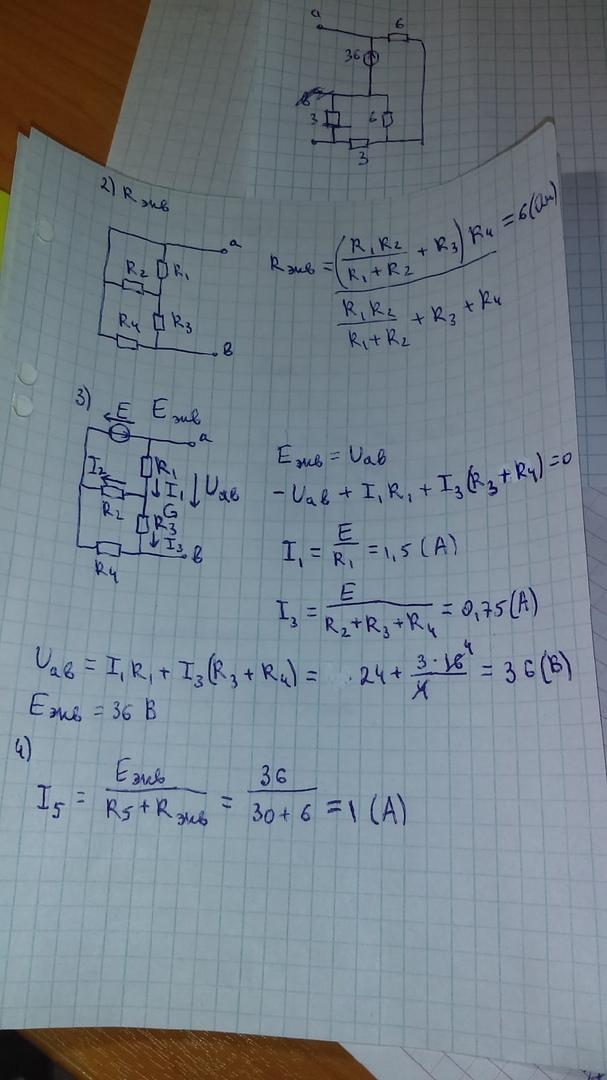 a
6
36
3
6
3
2) Rэкв
a
R2
R1
R4
R3
в
Rэкв = ((R1R2)/(R1+R2) + R3) R4 / ((R1R2)/(R1+R2) + R3 + R4) = 6 (Ом)
3) Eэкв
E
a
R1
I2
I1
Uав
R2
G
R3
I3
в
R4
Eэкв = Uав
-Uав + I1R1 + I3(R3+R4) = 0
I1 = E/R1 = 1,5 (A)
I3 = E/(R2+R3+R4) = 0,75 (A)
Uав = I1R1 + I3(R3+R4) = 24 + 3·16^4/4 = 36 (В)
Eэкв = 36 В
4)
I5 = Eэкв/(R5+Rэкв) = 36/(30+6) = 1 (A)